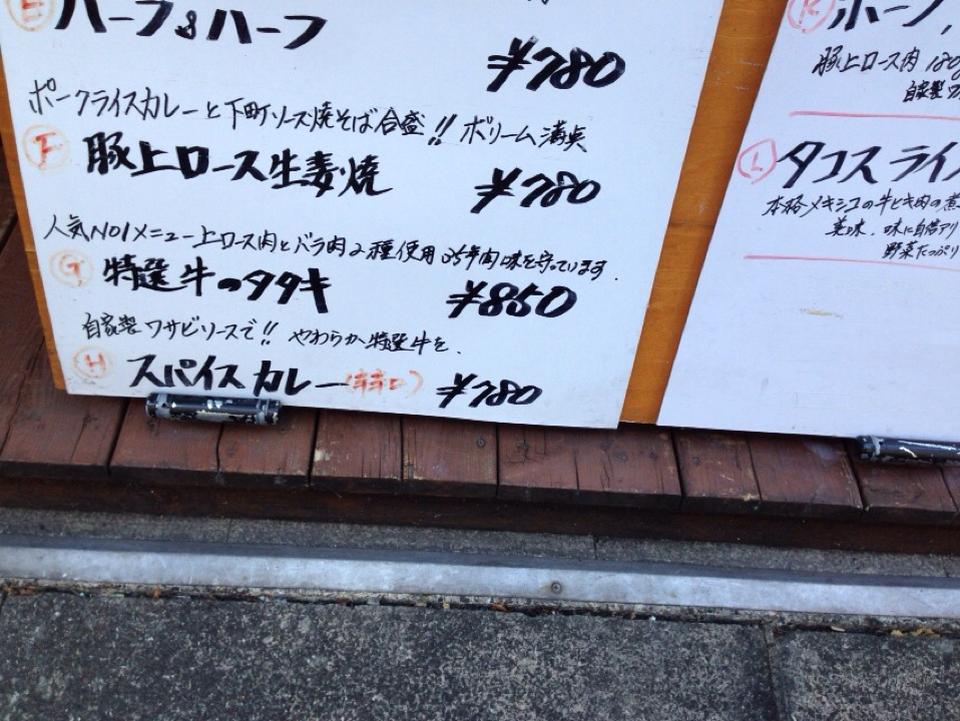 E ハーフ&ハーフ
¥780
ポークライスカレーと下町ソース焼そば合盛!! ボリーム満点
F 豚上ロース生姜焼 ¥780
人気NO1メニュー上ロース肉とバラ肉2種使用 25年間味を守っています.
G 特選牛のタタキ ¥850
自家製ワサビソースで!! やわらか特選牛を.
H スパイスカレー(辛口) ¥780
K ポーク
豚上ロース肉180g
自家製
L タコスライ
本格メキシコの牛ヒキ肉の煮
美味. 味に自信アリ
野菜たっぷり